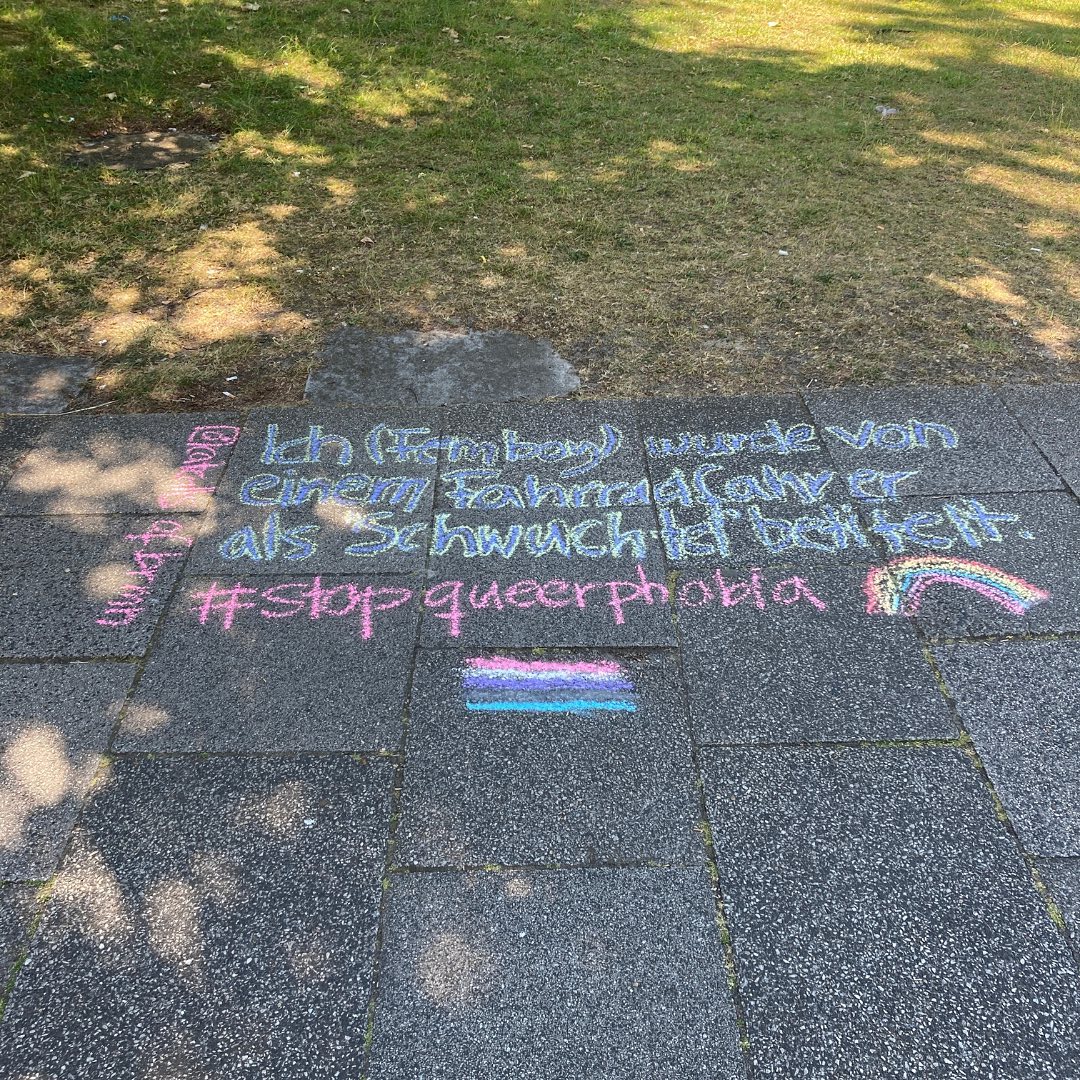 Ich (Femboy) wurde von
einem Fahrradfahrer
als "Schwuchtel" betitelt.
#stopqueerphobia